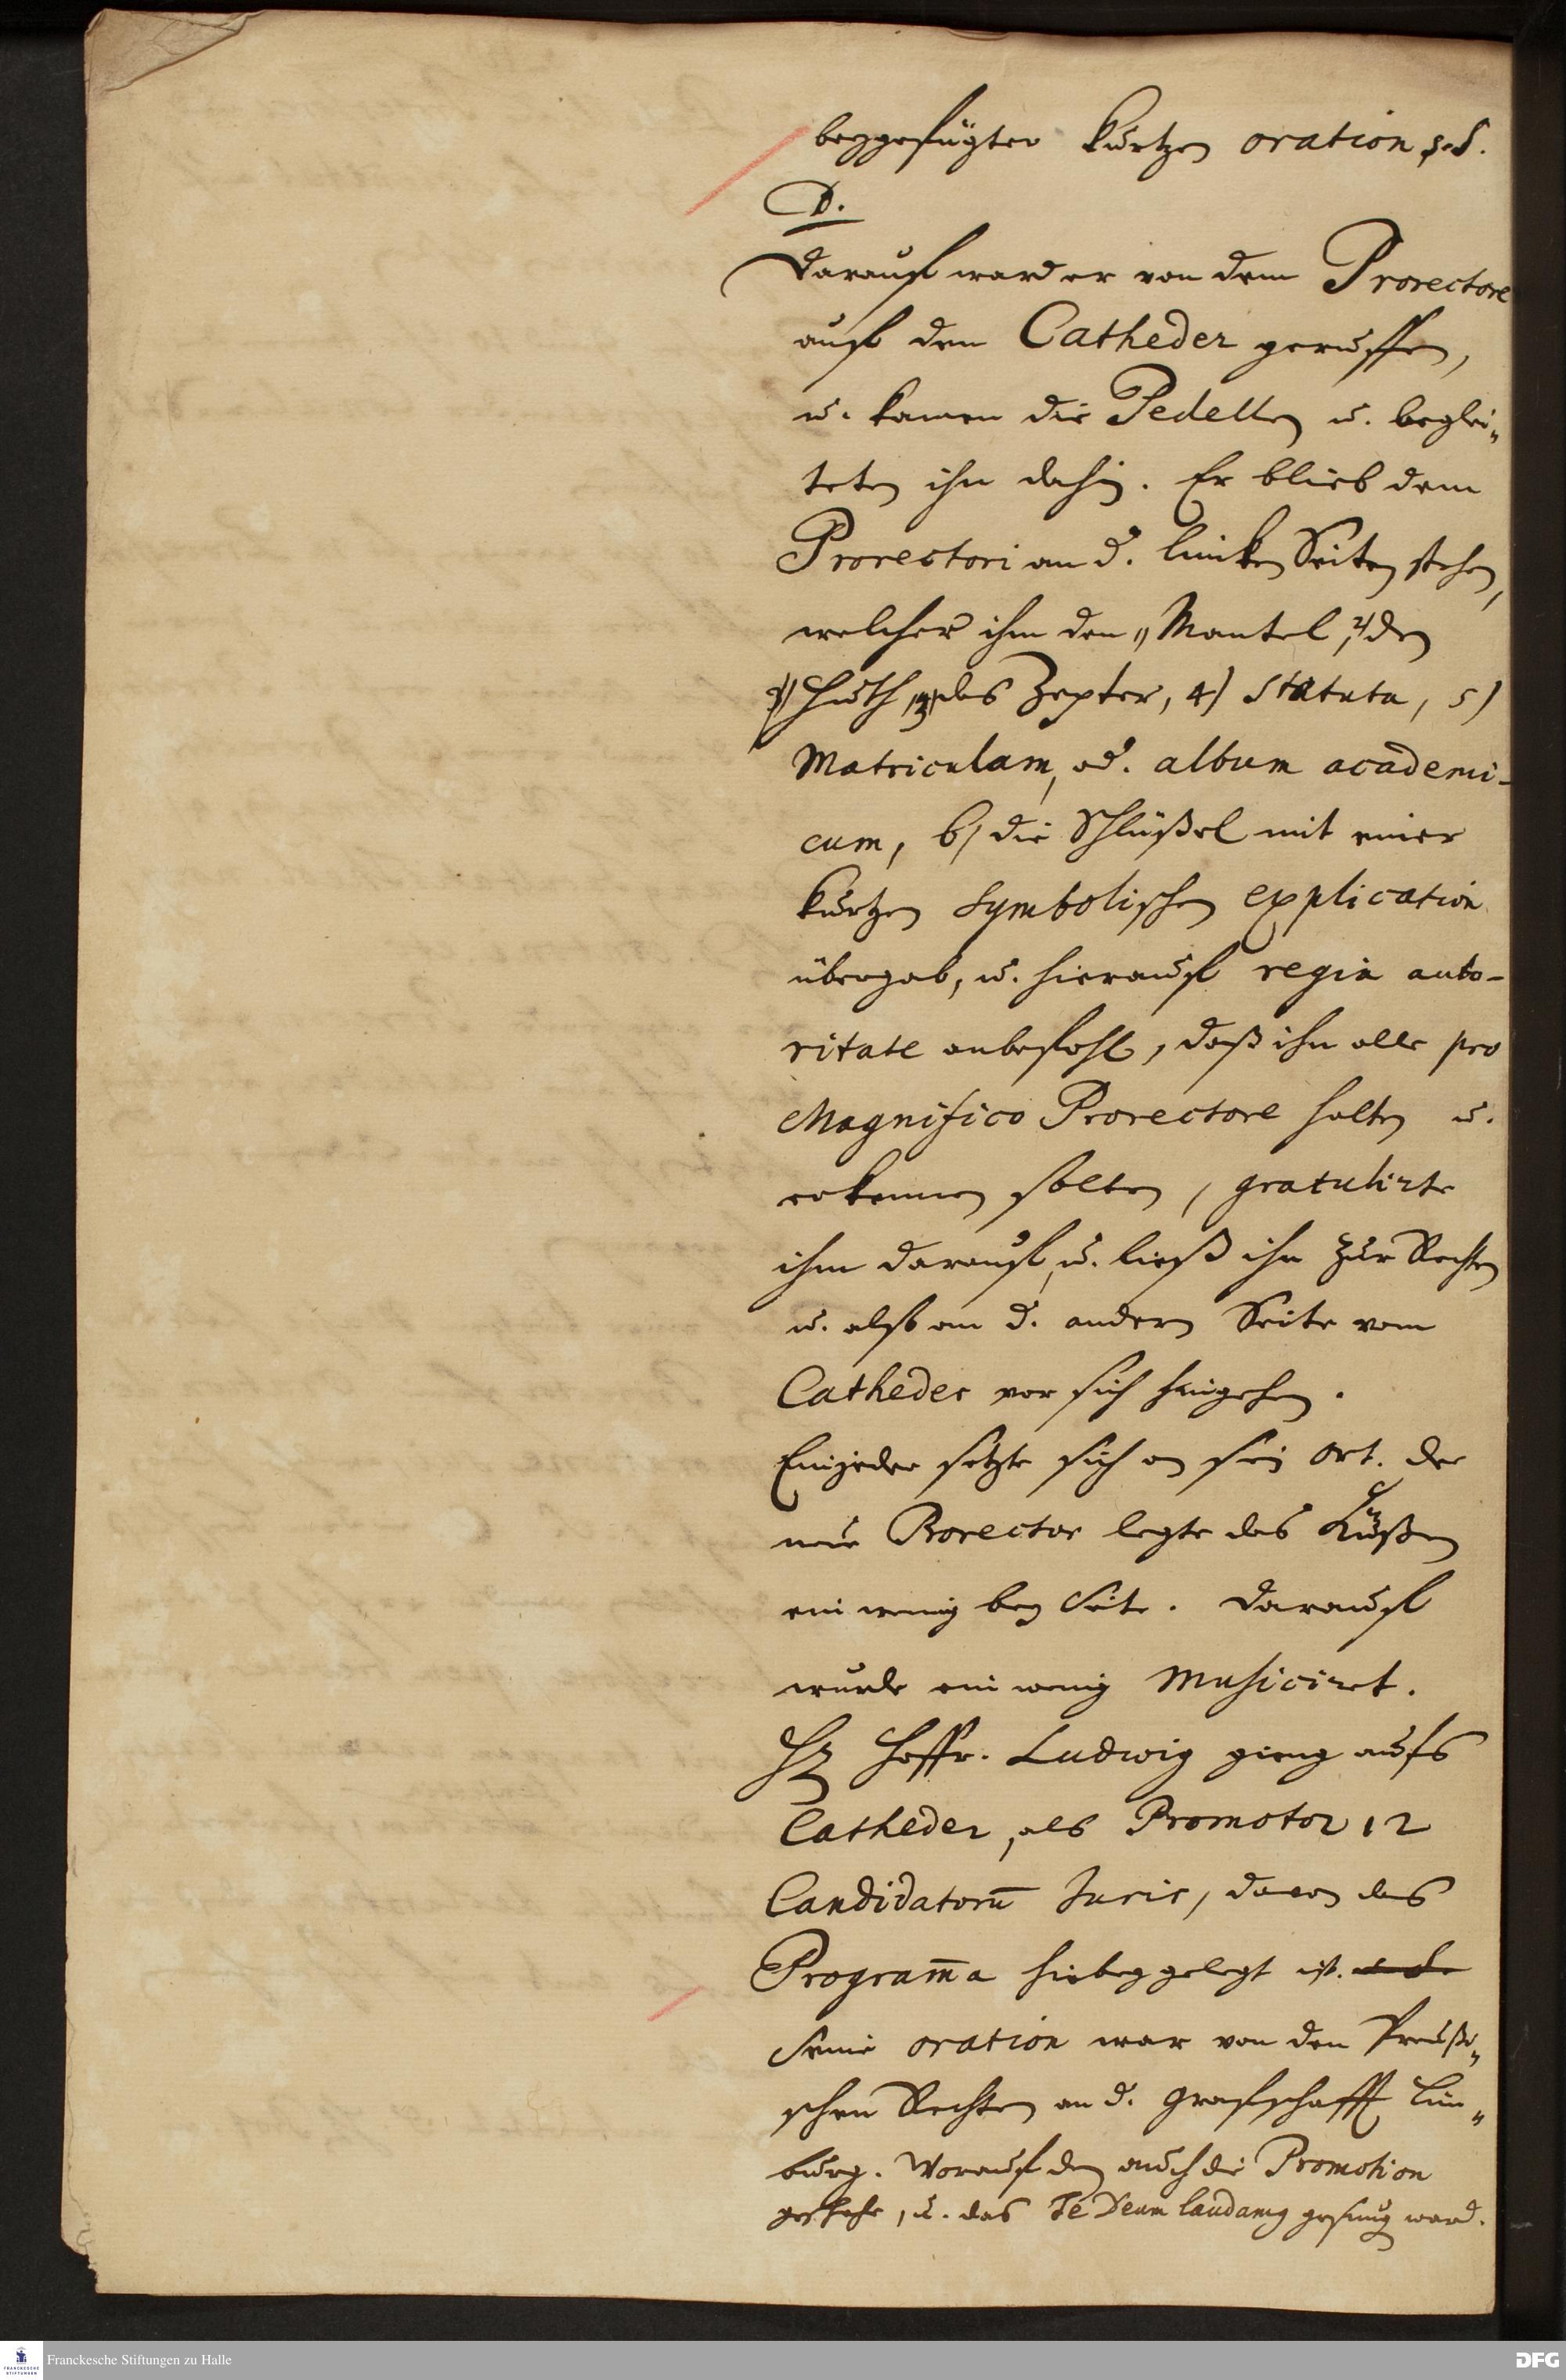 beygefügter kurtzen oration s. S.
D.
Darauf ward er von dem Prorectore
auf den Catheder geruffen,
u. kamen die Pedellen u. beglei„
teten ihn dahin. Er blieb dem
Prorectori an d. lincken Seiten stehen,
welcher ihm den 1) Mantel, 2) den
Huth, 3) das Zepter, 4) Statuta, 5)
Matriculam, od. album academi-
cum, 6) die Schlüßel mit einer
kurtzen symbolischen explication
übergab, u. hierauf regia auto-
ritate anbefohl, daß ihn alle pro
Magnifico Prorectore halten u.
erkennen solten, gratulirte
ihm darauf, u. ließ ihn zur Rechten
u. also an d. andern Seite vom
Catheder vor sich hingehen.
Einjeder setzte sich an sein Ort. der
neue Prorector legte das Küßen
ein wenig bey Seite. Darauf
wurde ein wenig musiciret.
H Hoffr. Ludwig gieng aufs
Catheder, als Promotor 12
Candidatorū Juris, davon das
Programͫa hiebey gelegt ist.
Seine oration war von den Preußi„
schen Rechten an d. Grafschafft Lim„
burg. Worauf den auch die Promotion
geschahe, u. das Te Deum laudamg gesung ward.
Franckesche Stiftungen zu Halle
FRANCKESCHE
STIFTUNGEN
DFG